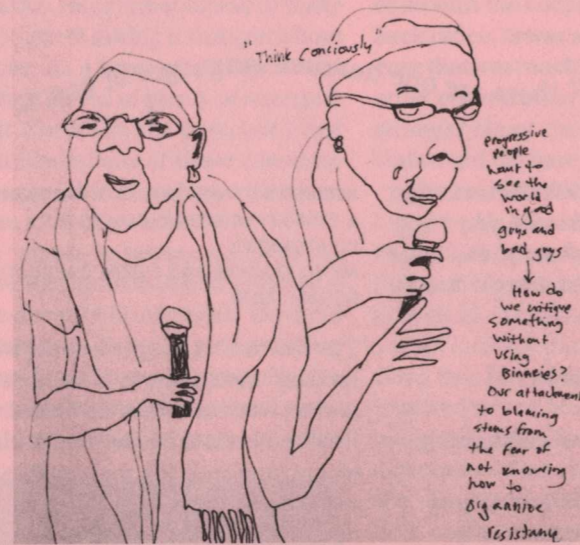 "Think Conciously"
progressive
People
want to
see the
world
in good
guys and
bad guys
How do
we critique
something
without
using
Binaries?
Our attachment
to blaming
stems from
the fear of
not knowing
how to
organize
resistance